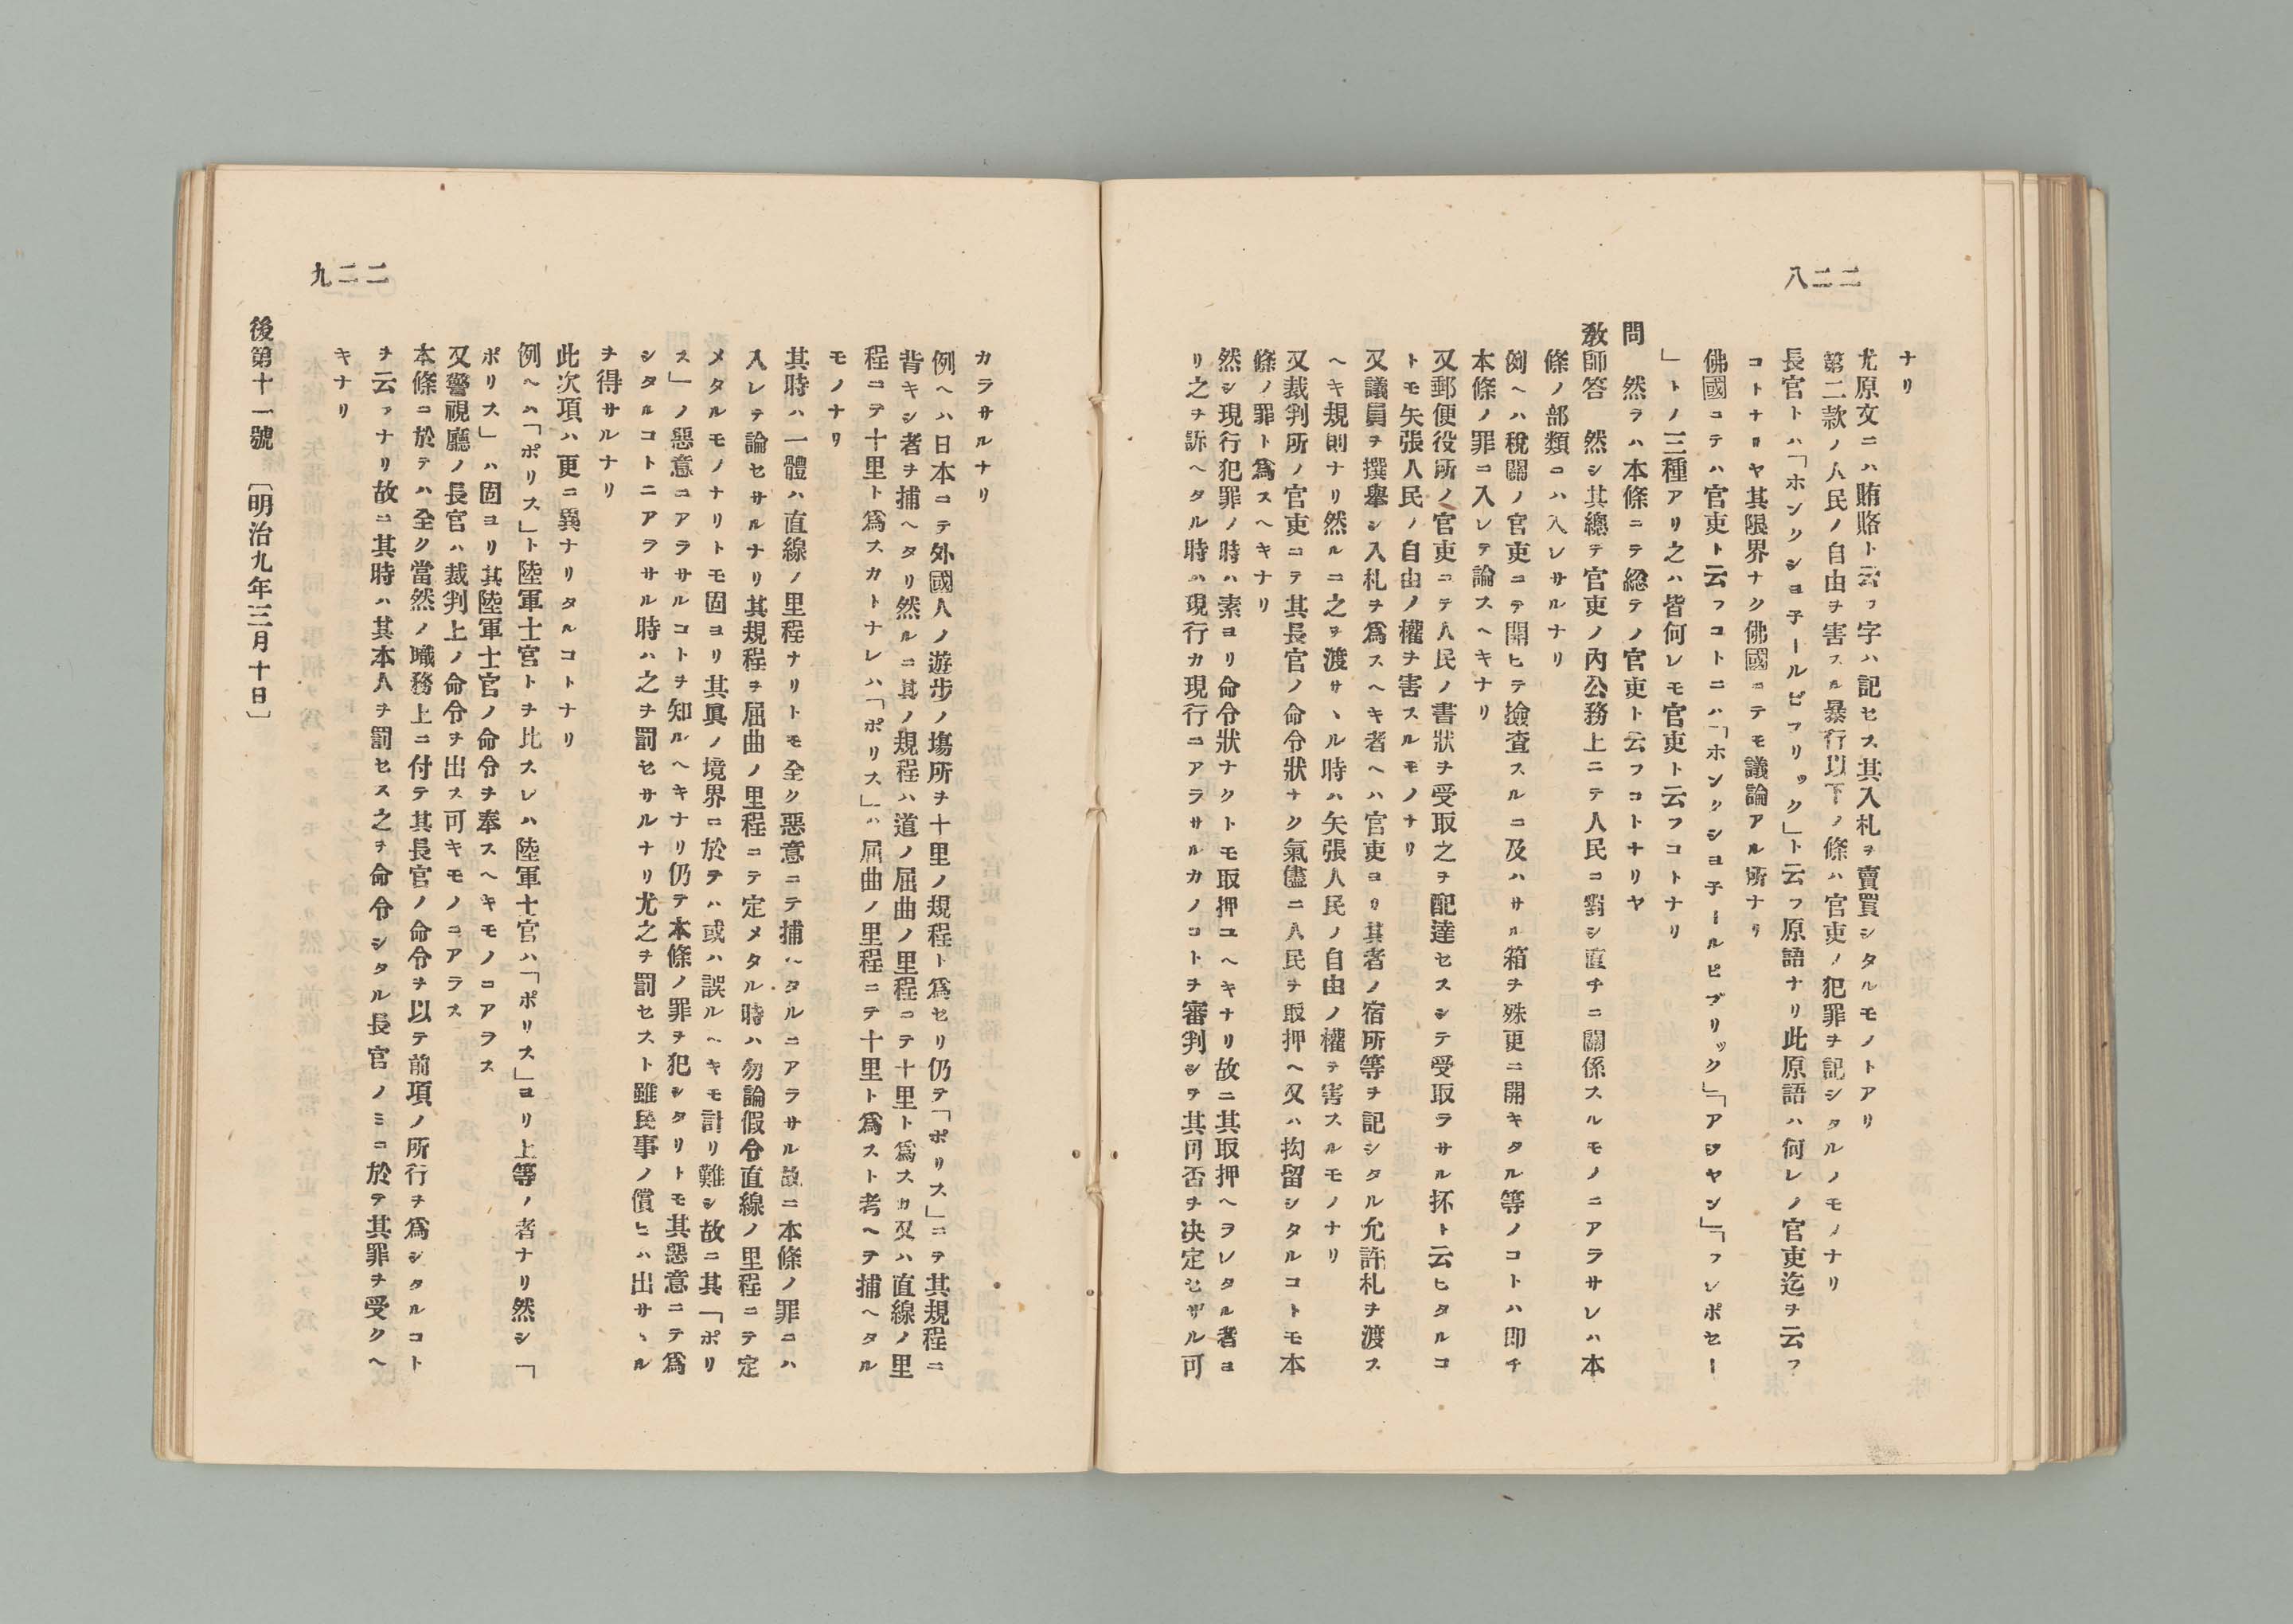 二二八
ナリ
尤原文ニハ賄賂ト云フ字ハ記セス其入札ヲ賣買シタルモノトアリ
第二款ノ人民ノ自由ヲ害スル暴行以下ノ條ハ官吏ノ犯罪ヲ記シタルノモノナリ
長官トハ「ホンクシヨ子ールピフリック」ト云フ原語ナリ此原語ハ何レノ官吏迄ヲ云フ
コトナルヤ其限界ナク佛國ニテモ議論アル所ナリ
佛國ニテハ官吏ト云フコトニハ「ホンクシヨ子ールピブリック」「アジヤン」「フレポセー
」トノ三種アリ之ハ皆何レモ官吏ト云フコトナリ
問 然ラハ本條ニテ総テノ官吏ト云フコトナリヤ
敎師答 然シ其總テ官吏ノ內公務上ニテ人民ニ對シ直チニ關係スルモノニアラサレハ本
條ノ部類ニハ入レサルナリ
例ヘハ稅關ノ官吏ニテ開ヒテ撿査スルニ及ハサル箱ヲ殊更ニ開キタル等ノコトハ即チ
本條ノ罪ニ入レテ論スヘキナリ
又郵便役所ノ官吏ニテ人民ノ書狀ヲ受取之ヲ配達セスシテ受取ラサル抔ト云ヒタルコ
トモ矢張人民ノ自由ノ權ヲ害スルモノナリ
又議員ヲ撰擧シ入札ヲ爲スヘキ者ヘハ官吏ヨリ其者ノ宿所等ヲ記シタル允許札ヲ渡ス
ヘキ規則ナリ然ルニ之ヲ渡サヽル時ハ矢張人民ノ自由ノ權ヲ害スルモノナリ
又裁判所ノ官吏ニテ其長官ノ命令狀ナク氣儘ニ人民ヲ取押ヘ又ハ拘留シタルコトモ本
條ノ罪ト爲スヘキナリ
然シ現行犯罪ノ時ハ素ヨリ命令狀ナクトモ取押ユヘキナリ故ニ其取押ヘラレタル者ヨ
リ之ヲ訴ヘタル時ハ現行カ現行ニアラサルカノコトヲ審判シテ其可否ヲ决定セザル可
二二九
カラサルナリ
例ヘハ日本ニテ外國人ノ遊步ノ塲所ヲ十里ノ規程ト爲セリ仍テ「ポリス」ニテ其規程ニ
背キシ者ヲ捕ヘタリ然ルニ其ノ規程ハ道ノ屈曲ノ里程ニテ十里ト爲スカ又ハ直線ノ里
程ニテ十里ト爲スカトナレハ「ポリス」ハ屈曲ノ里程ニテ十里ト爲スト考ヘテ捕ヘタル
モノナリ
其時ハ一體ハ直線ノ里程ナリトモ全ク惡意ニテ捕ヘタルニアラサル故ニ本條ノ罪ニハ
入レテ論セサルナリ其規程ヲ屈曲ノ里程ニテ定メタル時ハ勿論假令直線ノ里程ニテ定
メタルモノナリトモ固ヨリ其眞ノ境界ニ於テハ或ハ誤ルヘキモ計リ難シ故ニ其「ポリ
ス」ノ惡意ニアラサルコトヲ知ルヘキナリ仍テ本條ノ罪ヲ犯シタリトモ其惡意ニテ爲
シタルコトニアラサル時ハ之ヲ罰セサルナリ尤之ヲ罰セスト雖民事ノ償ヒハ出サヽル
ヲ得サルナリ
此次項ハ更ニ異ナリタルコトナリ
例ヘハ「ポリス」ト陸軍士官トヲ比スレハ陸軍士官ハ「ポリス」ヨリ上等ノ者ナリ然シ「
ポリス」ハ固ヨリ其陸軍士官ノ命令ヲ奉スヘキモノニアラス
又警視廳ノ長官ハ裁判上ノ命令ヲ出ス可キモノニアラス
本條ニ於テハ全ク當然ノ職務上ニ付テ其長官ノ命令ヲ以テ前項ノ所行ヲ爲シタルコト
ヲ云フナリ故ニ其時ハ其本人ヲ罰セス之ヲ命令シタル長官ノミニ於テ其罪ヲ受クヘ
キナリ
後第十一號 〔明治九年三月十日〕